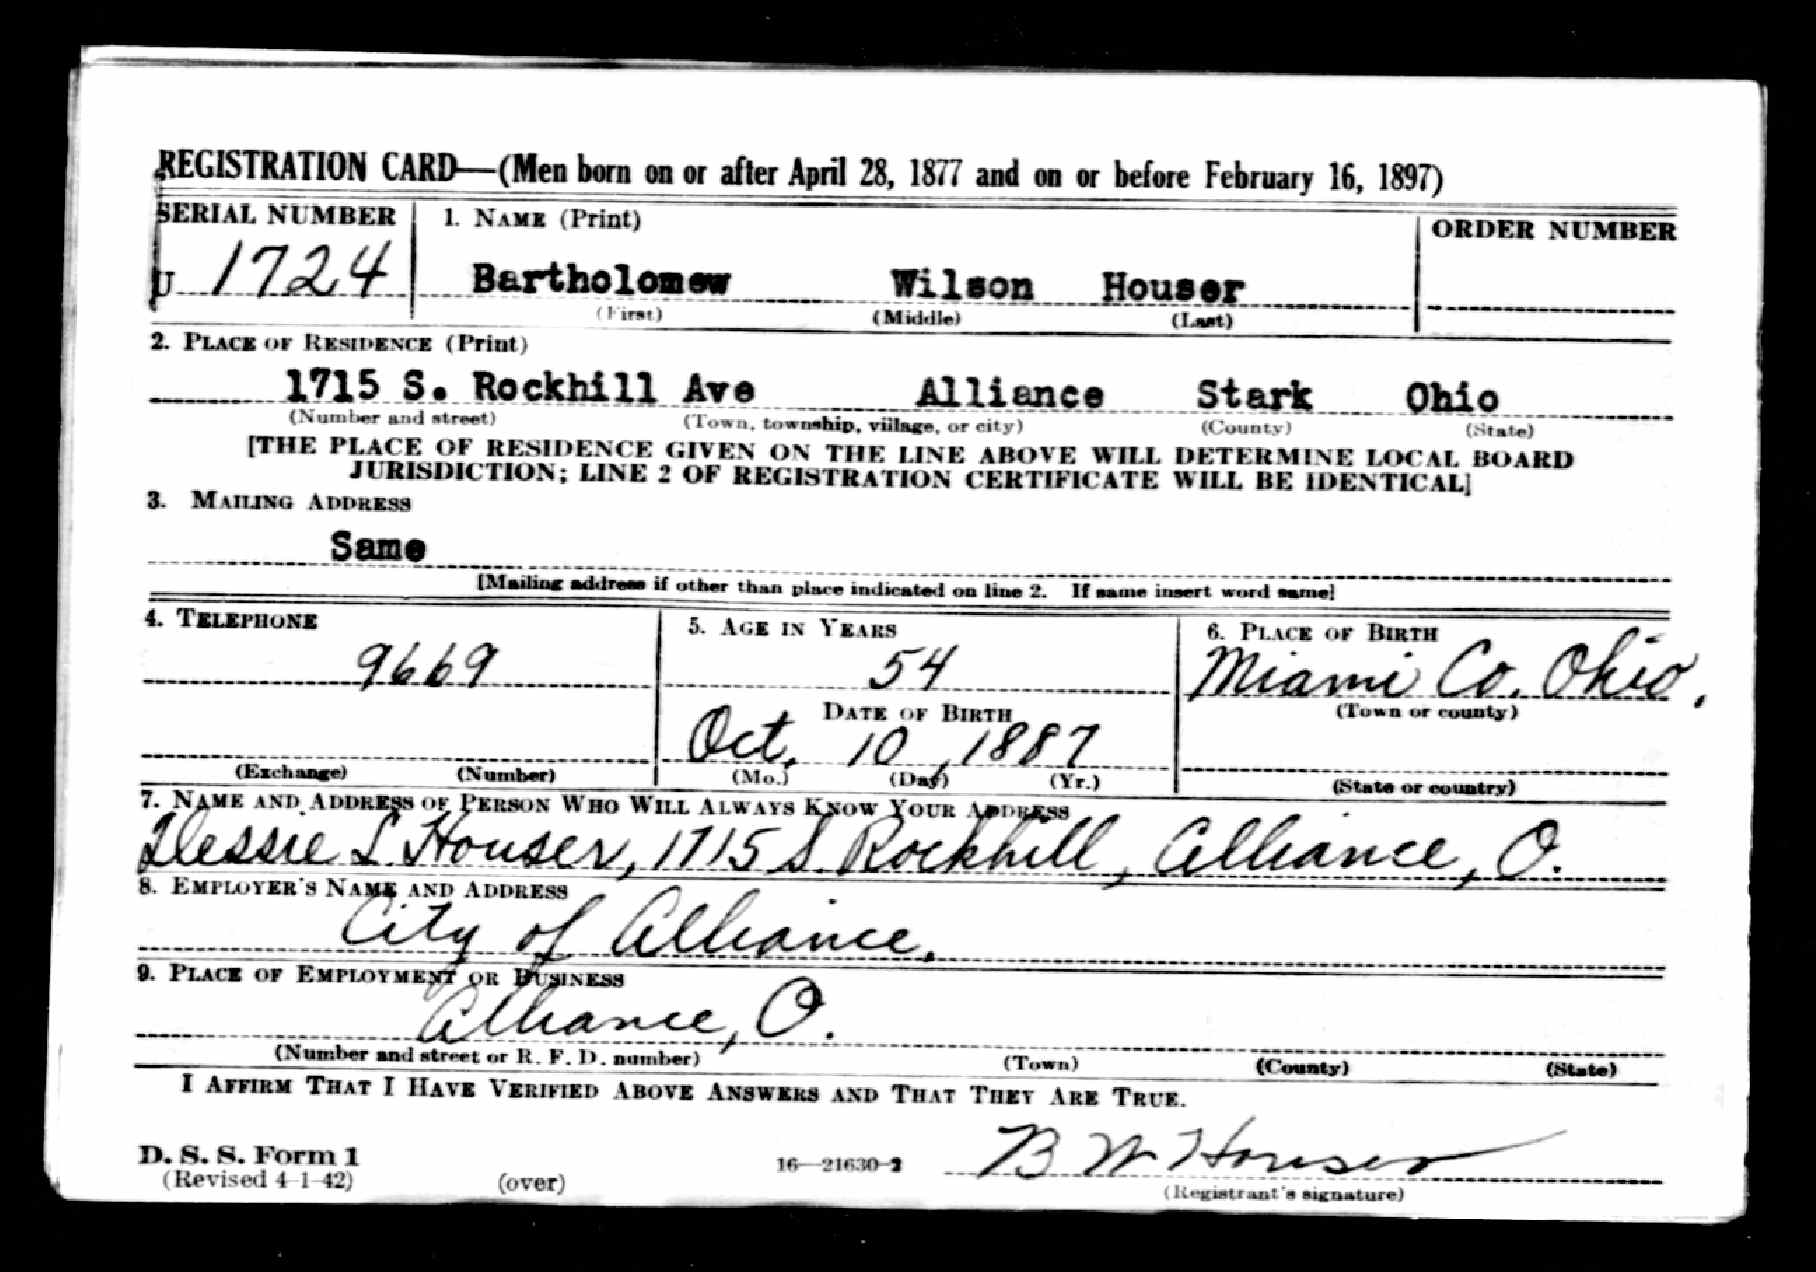 REGISTRATION CARD—(Men born on or after April 28, 1877 and on or before February 16, 1897)
SERIAL NUMBER 1. NAME (Print) ORDER NUMBER
U 1724 Bartholomew Wilson Houser
(First) (Middle) (Last)
2. PLACE OF RESIDENCE (Print)
1715 S. Rockhill Ave Alliance Stark Ohio
(Number and street) (Town, township, village, or city) (County) (State)
[THE PLACE OF RESIDENCE GIVEN ON THE LINE ABOVE WILL DETERMINE LOCAL BOARD
JURISDICTION; LINE 2 OF REGISTRATION CERTIFICATE WILL BE IDENTICAL]
3. MAILING ADDRESS
Same
[Mailing address if other than place indicated on line 2. If same insert word same]
4. TELEPHONE 5. AGE IN YEARS 6. PLACE OF BIRTH
9669 54 Miami Co. Ohio.
DATE OF BIRTH (Town or county)
Oct. 10, 1887
(Exchange) (Number) (Mo.) (Day) (Yr.) (State or country)
7. NAME AND ADDRESS OF PERSON WHO WILL ALWAYS KNOW YOUR ADDRESS
L. Houser, 1715 S. Rockhill, Alliance, O.
8. EMPLOYER'S NAME AND ADDRESS
City of Alliance.
9. PLACE OF EMPLOYMENT OR BUSINESS
Alliance, O.
(Number and street or R. F. D. number) (Town) (County) (State)
I AFFIRM THAT I HAVE VERIFIED ABOVE ANSWERS AND THAT THEY ARE TRUE.
D. S. S. Form 1
(Revised 4-1-42) (over) 16—21630-2 B W Houser
(Registrant's signature)